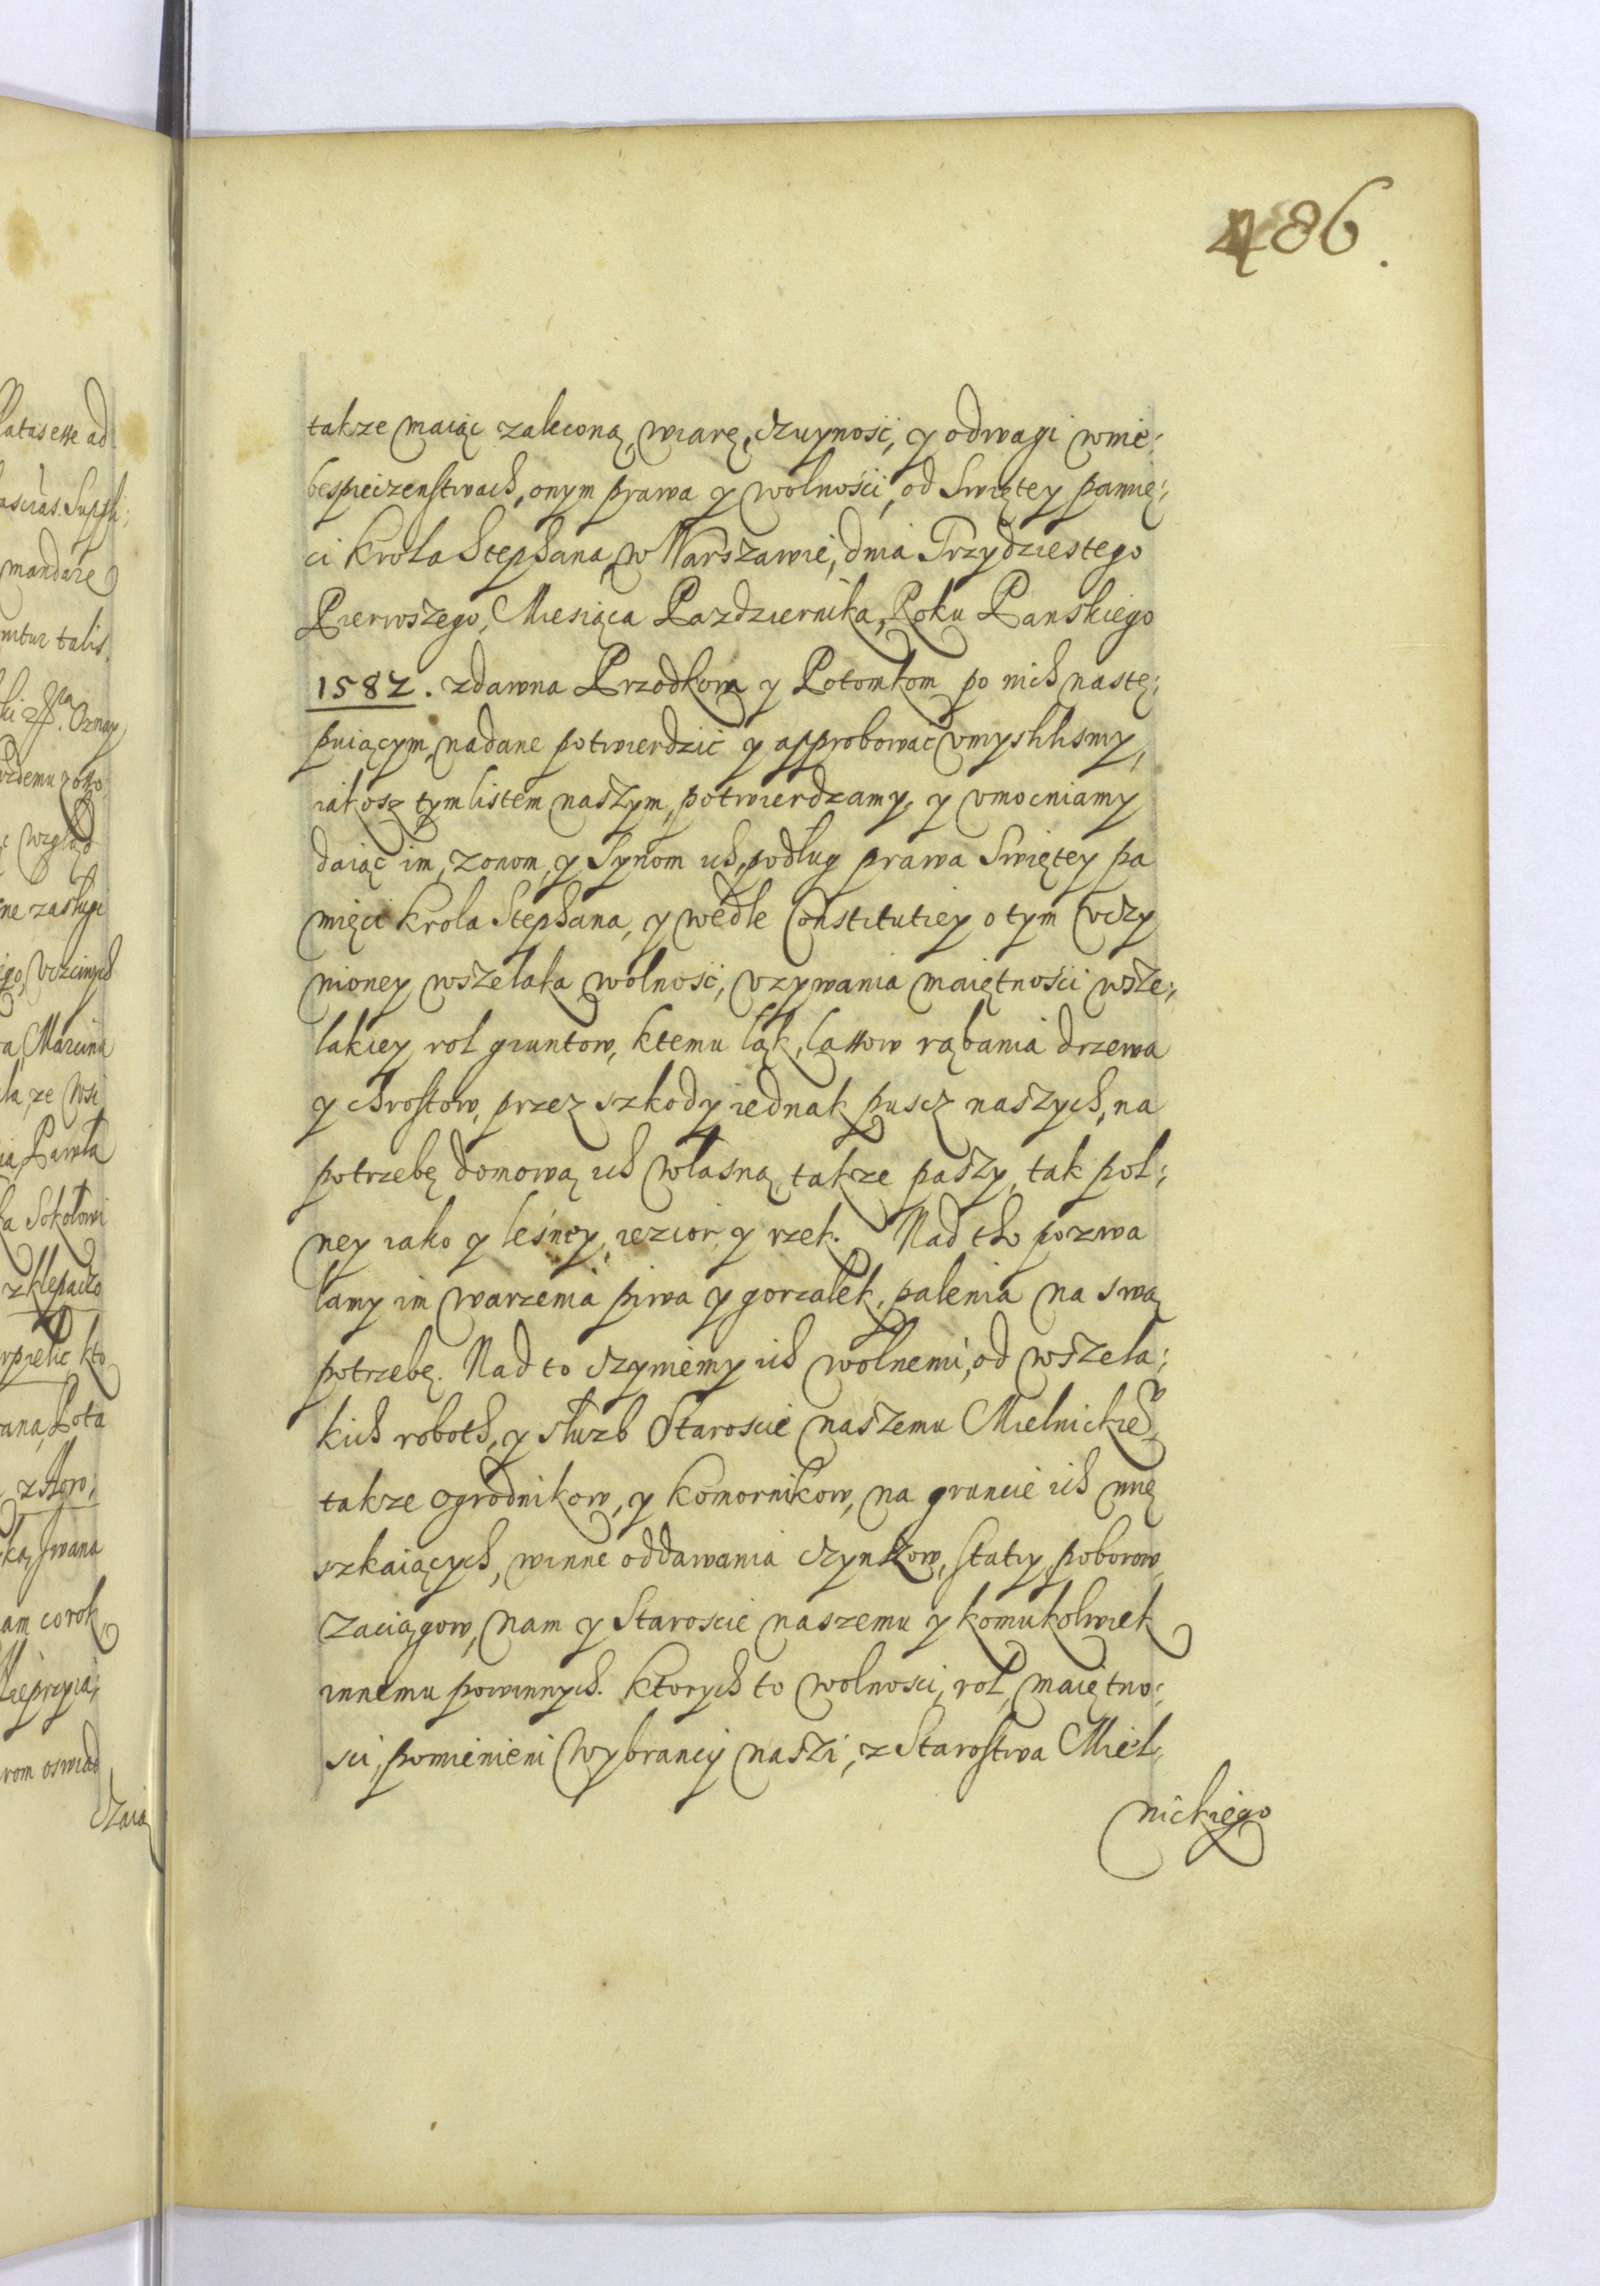 486.
takze maiąc zaleconą, wiarę, czuyność, y odwagi wnie:
bespieczenstwach, onym prawa y wolności, od Swiętey pamię:
ci krola Stephana, w Warszawie, dnia Trzydziestego
Pierwszego, Miesiąca Pazdziernika, Roku Panskiego
1582. zdawna Przodkom y Potomkom po nich nastę:
puiącym, nadane potwierdzić y approbować vmyslilismy,
iakosz tym listem naszym, potwierdzamy, y vmocniamy
daiąc im, zonom, y Synom ich, podług prawa Swiętey pa
mięci krola Stephana, y wedle Constitutiey o tym vczy
nioney wszelaka wolność, vzywania maiętności wsze:
lakiey rol gruntow, ktemu ląk, lassow rąbania drzewa
y chrostow, przez szkody iednak puscz naszych, na
potrzebę domową ich własną, takze paszy, tak pol:
ney iako y leśney, iezior, y rzek. Nad tho pozwa
lamy im warzenia piwa y gorzalek, palenia na swą
potrzebę. Nad to czyniemy ich wolnemi, od wszela:
kich roboth, y słuzb Staroscie naszemu Mielnickie(v)
takze ogrodnikow, y komornikow, na gruncie ich mię
szkaiących, winne oddawania czynszow, stacy, poborow,
Zaciągow, nam y Staroscie naszemu y komukolwiek
innemu powinnych. ktorych to wolności, rol, maiętno:
sci, pomienieni Wybrancy naszi, z Starostwa Miel,
nickiego